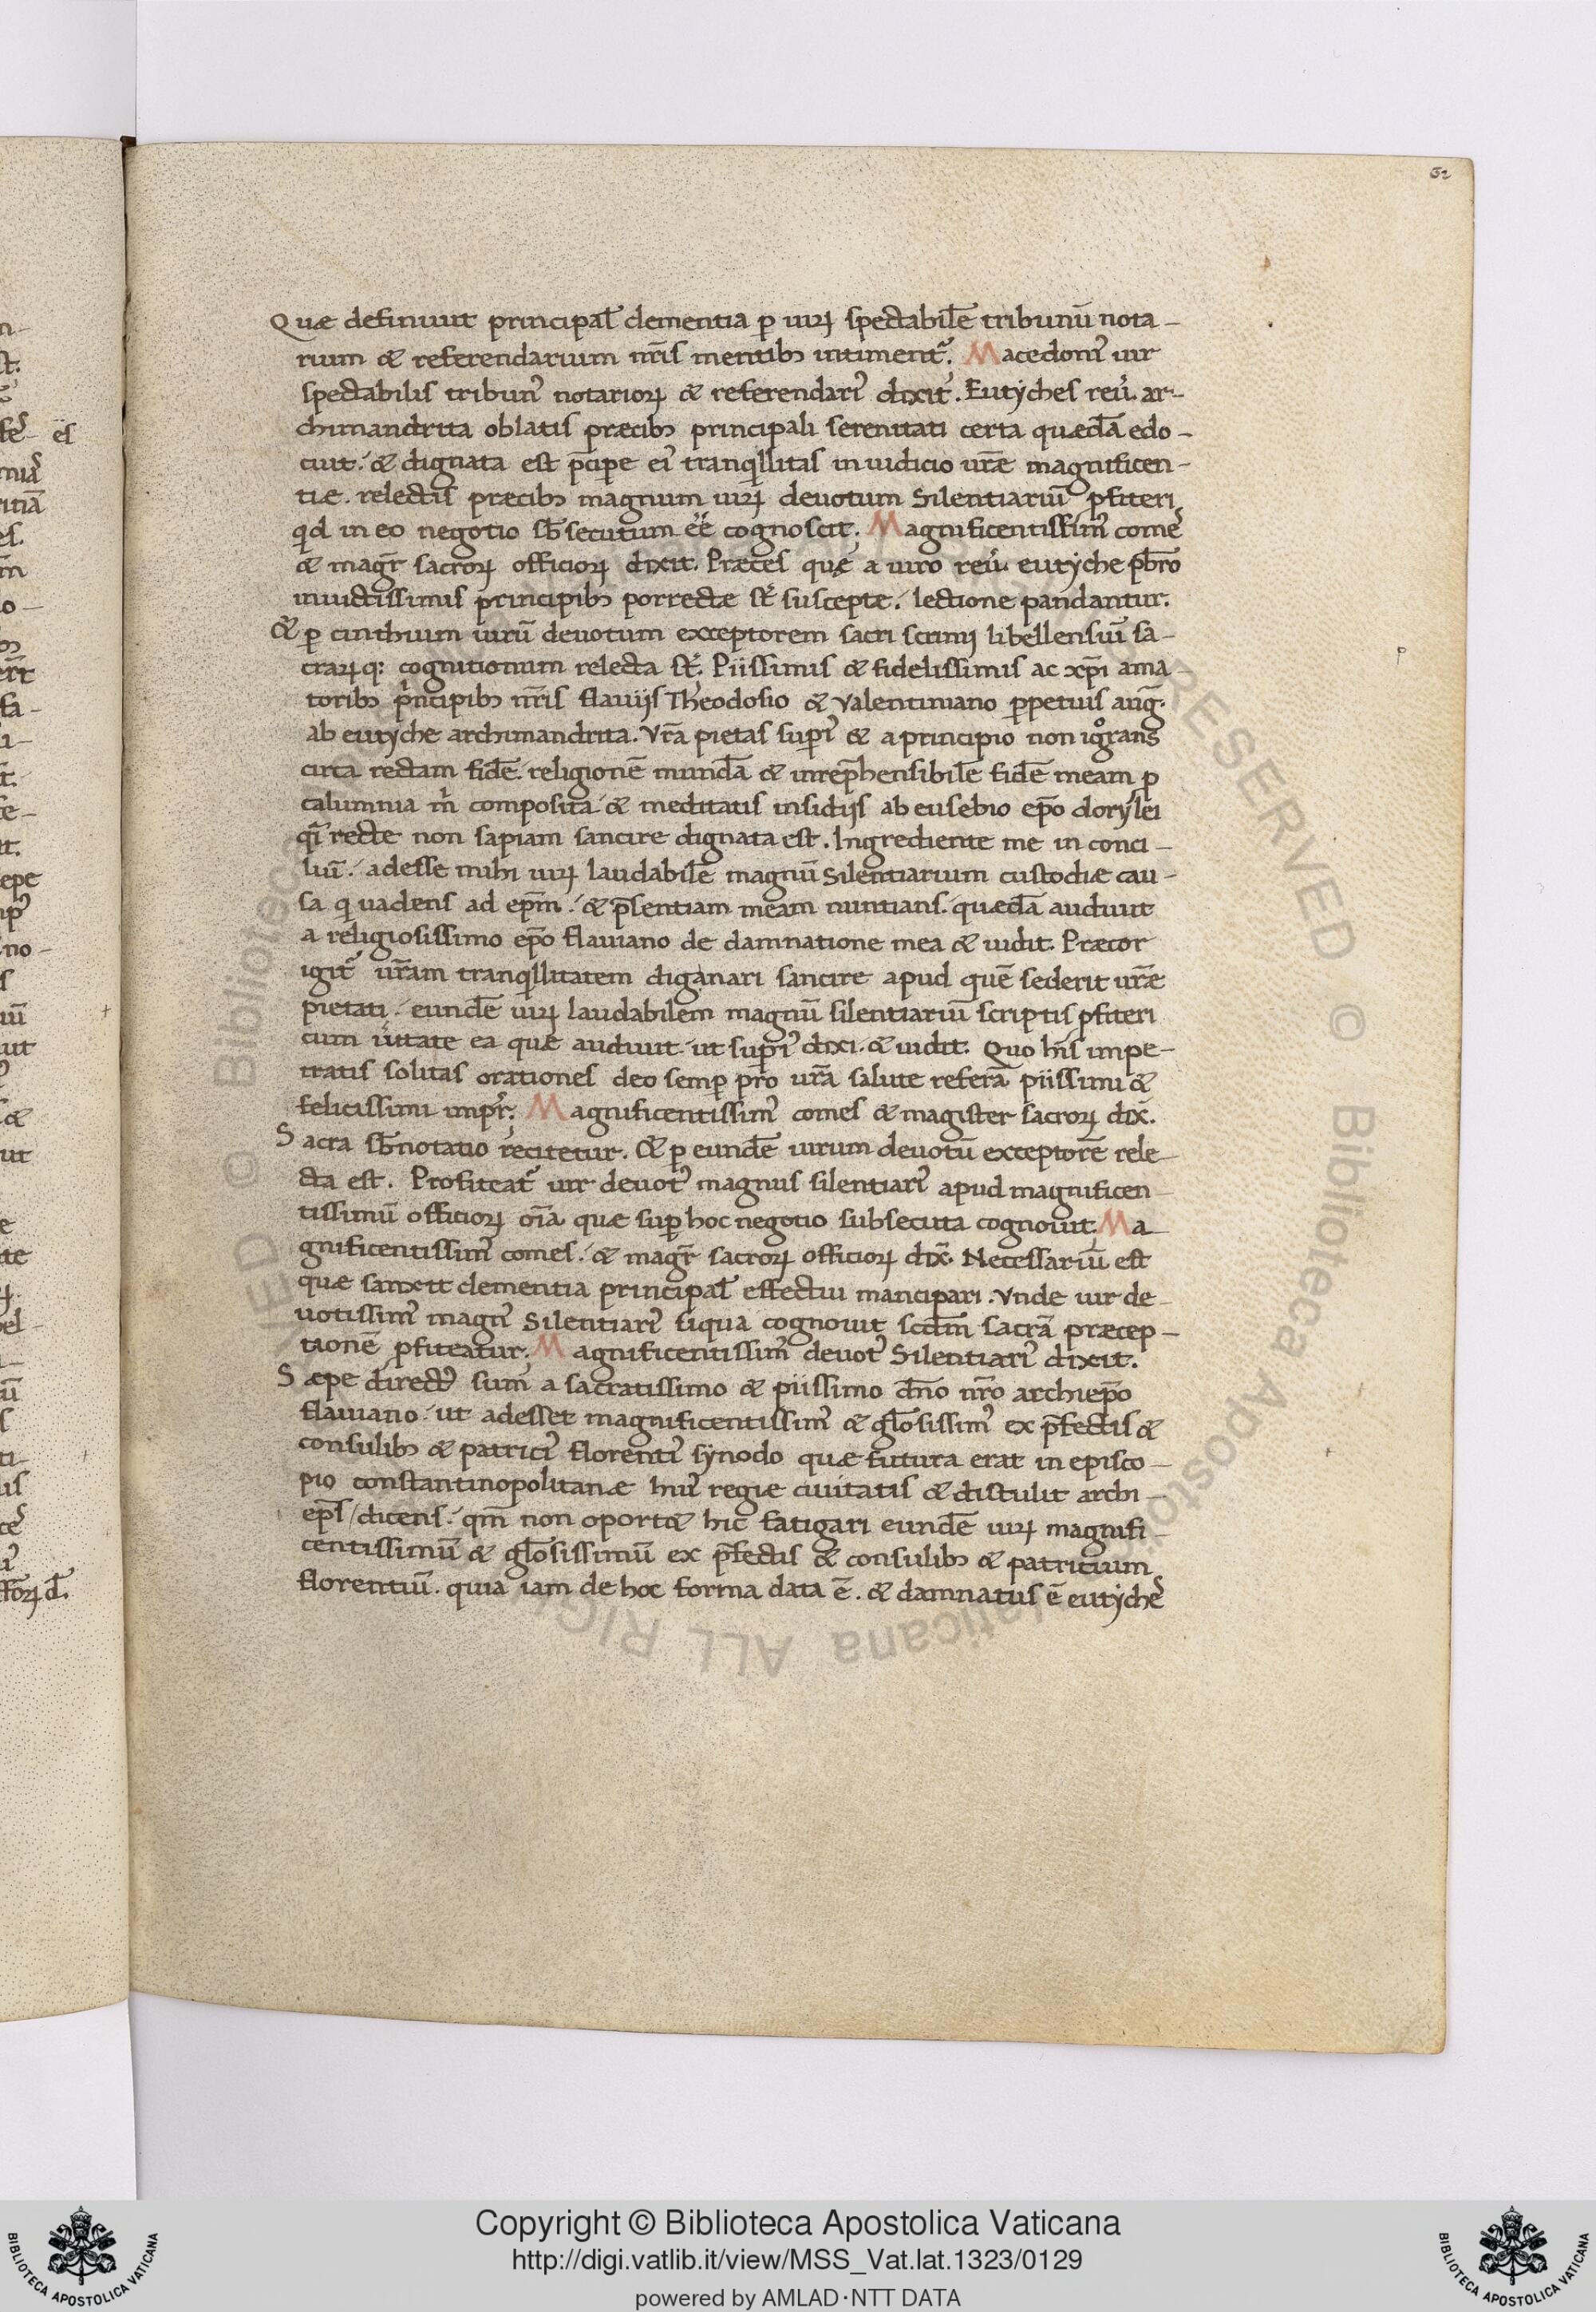 62
Quæ definiuit principal̄ clementia ꝑ uiꝝ spectabilē tribunū nota-
rium & referendarium nr̄is mentibꝫ intiment᷑. Macedoni᷒ uir
spectabilis tribun᷒ notarioꝝ & referendari᷒ dixit. Eutyches reu᷑. ar-
chimandrita oblatis præcibꝫ principali serenitati certa quædā edo-
cuit. & dignata est p̄cipe ei᷒ tranqillitas in iudicio ur̄æ magnificen-
tiæ. relectis præcibꝫ magnum uiꝝ deuotum Silentiariū ꝓfiteri
qd in eo negotio sb̄secutum ee᷑ cognoscit. Magnificentissim᷒ comes
& magr̄ sacroꝝ officioꝝ dixit. Præces quę a uiro reu᷑. eutyche pb̄ro
inuictissimis principibꝫ porrectæ st᷑ susceptę. lectione pandantur.
& ꝑ cinthium uirū deuotum exceptorem sacri scrinij libellensiū sa-
craꝝqꝫ cognitionum relecta st᷑. Piissimis & fidelissimis ac xp̄i ama
toribꝫ pͥncipibꝫ nr̄is flauijs Theodosio & Valentiniano ꝑpetuis auḡ.
ab eutyche archimandrita. Vr̄a pietas superi᷒ & a principio non ignorans
circa rectam fidē. religionē mundā & inrep̄hensibilē fidē meam ꝑ
calumnia m̄ composita & meditatis insidijs ab eusebio ep̄o dorylei
qi᷑ recte non sapiam sancire dignata est. Ingrediente me in conci-
liū. adesse mihi uiꝝ laudabilē magnū Silentiarium custodiæ cau-
sa qͥ uadens ad ep̄m. & p̄sentiam meam nuntians. quædā audiuit
a religiosissimo ep̄o flauiano de damnatione mea & uidit. Præcor
igit᷑ ur̄am tranqͥllitatem diganari sancire apud quē sederit ur̄æ
pietati. eundē uiꝝ laudabilem magnū silentiariū scriptis ꝓfiteri
cum u᷑itate ea quæ audiuit. ut superi᷒ dixi. & uidit. Quo hi᷒s impe-
tratis solitas orationes deo semꝑ pro ur̄a salute referā piissimi &
felicissimi imp᷑r. Magnificentissim᷒ comes & magister sacroꝝ dix̄.
Sacra sb̄notatio recitetur. & ꝑ eundē uirum deuotū exceptorē rele-
cta est. Profiteat᷑ uir deuot᷒ magnus silentiari᷒ apud magnificen
tissimū officioꝝ oīa quæ suꝑ hoc negotio subsecuta cognouit. Ma
gnificentissim᷒ comes. & magr̄ sacroꝝ officioꝝ dix̄. Necessariū est
quæ sanxit clementia principal̄ effectui mancipari. Vnde uir de-
uotissim᷒ magn᷒ Silentiari᷒ siqua cognouit scd̄m sacrā præcep-
tionē ꝓfiteatur. Magnificentissim᷒ deuot᷒ Silentiari᷒ dixit.
Sæpe direct᷒ sum a sacratissimo & piissimo dn̄o nr̄o archiep̄o
flauiano. ut adesset magnificentissim᷒ & gl̄osissim᷒ ex p̄fectis &
consulibꝫ & patrici᷒ florenti᷒ synodo quæ futura erat in episco-
pio constantinopolitanæ hui᷒ regiæ ciuitatis & distulit archi-
ep̄s/dicens. qm̄ non oport& hic fatigari eundē uiꝝ magnifi-
centissimū & gl̄osissimū ex p̄fectis & consulibꝫ & patricium
florentiū. quia iam de hoc forma data ē. & damnatus ē eutyches
Copyright © Biblioteca Apostolica Vaticana
http://digi.vatlib.it/view/MSS_Vat.lat.1323/0129
powered by AMLAD·NTT DATA
BIBLIOTECA APOSTOLICA VATICANA
BIBLIOTECA APOSTOLICA VATICANA